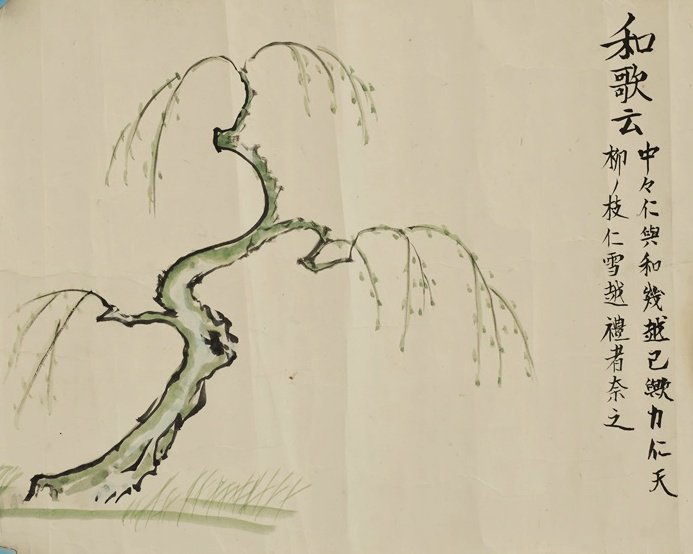 和歌云
中々仁與和幾越己歟力仁天
柳ノ枝仁雪越禮者奈之